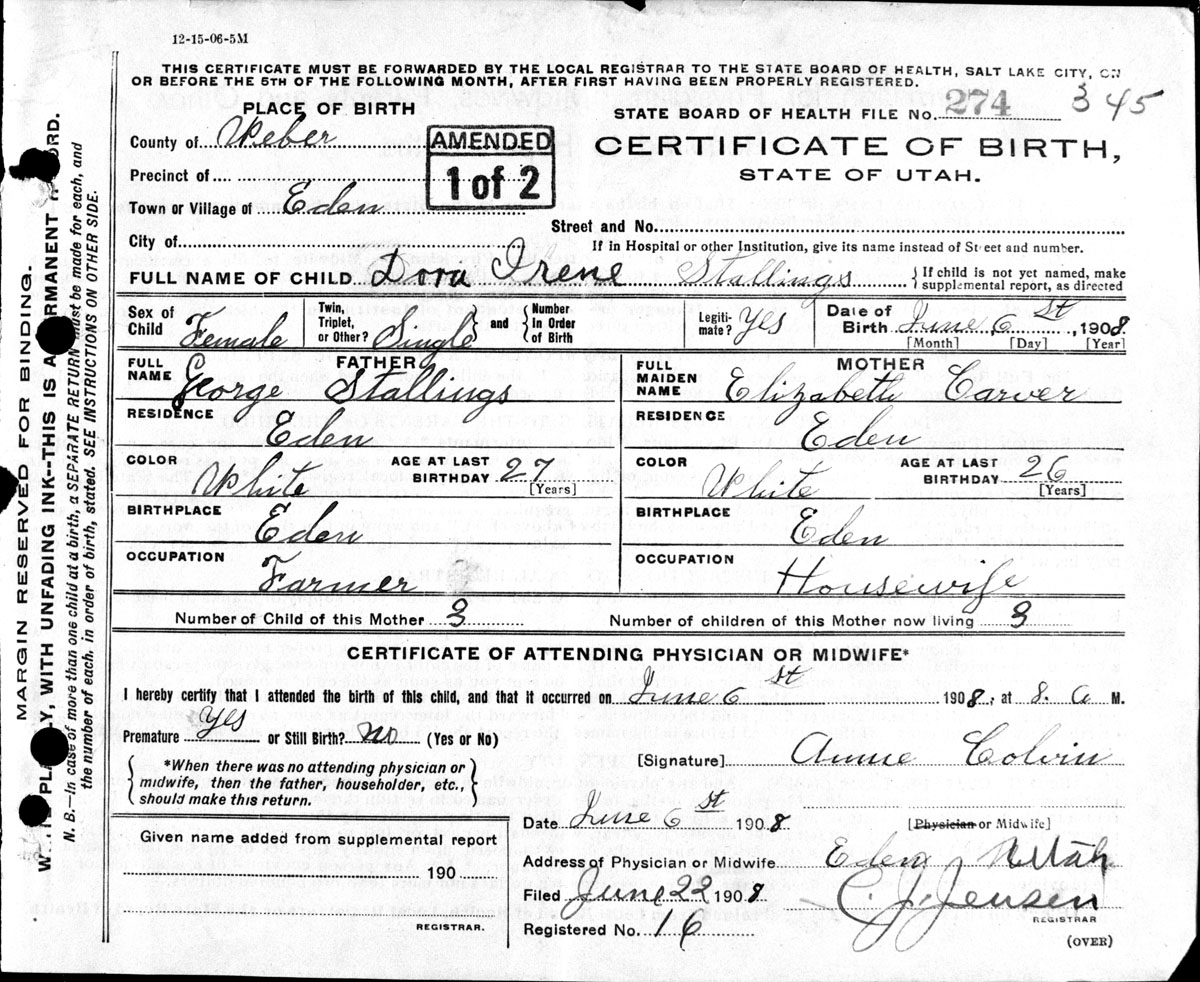 12-15-06-5M
THIS CERTIFICATE MUST BE FORWARDED BY THE LOCAL REGISTRAR TO THE STATE BOARD OF HEALTH, SALT LAKE CITY, ON
OR BEFORE THE 5TH OF THE FOLLOWING MONTH, AFTER FIRST HAVING BEEN PROPERLY REGISTERED.
PLACE OF BIRTH
STATE BOARD OF HEALTH FILE No. 274 345
County of Weber
AMENDED
1 of 2
CERTIFICATE OF BIRTH,
STATE OF UTAH.
Precinct of
Town or Village of Eden
Street and No.
City of
If in Hospital or other Institution, give its name instead of Street and number.
FULL NAME OF CHILD Dora Irene Stallings { If child is not yet named, make
supplemental report, as directed
Sex of Child Female
Twin, Triplet, or Other? Single } and { Number in Order of Birth
Legiti-mate? Yes
Date of Birth June 6 st, 1908
[Month] [Day] [Year]
FATHER
FULL NAME George Stallings
RESIDENCE Eden
COLOR White AGE AT LAST BIRTHDAY 27 [Years]
BIRTHPLACE Eden
OCCUPATION Farmer
MOTHER
FULL MAIDEN NAME Elizabeth Carver
RESIDENCE Eden
COLOR White AGE AT LAST BIRTHDAY 26 [Years]
BIRTHPLACE Eden
OCCUPATION Housewife
Number of Child of this Mother 3 Number of children of this Mother now living 3
CERTIFICATE OF ATTENDING PHYSICIAN OR MIDWIFE*
I hereby certify that I attended the birth of this child, and that it occurred on June 6 st 1908, at 8. a M.
Premature Yes or Still Birth? no (Yes or No)
[Signature] Annie Colvin
{ *When there was no attending physician or
midwife, then the father, householder, etc.,
should make this return. }
Date June 6 st 1908 [Physician or Midwife]
Given name added from supplemental report
190
REGISTRAR.
Address of Physician or Midwife Eden Utah
Filed June 22 1908 C. J. Jensen
REGISTRAR
Registered No. 16
(OVER)
MARGIN RESERVED FOR BINDING.
WITH UNFADING INK--THIS IS A
N. B.--In case of more than one child at a birth, a SEPARATE RETURN must be made for each, and
the number of each, in order of birth, stated. SEE INSTRUCTIONS ON OTHER SIDE.